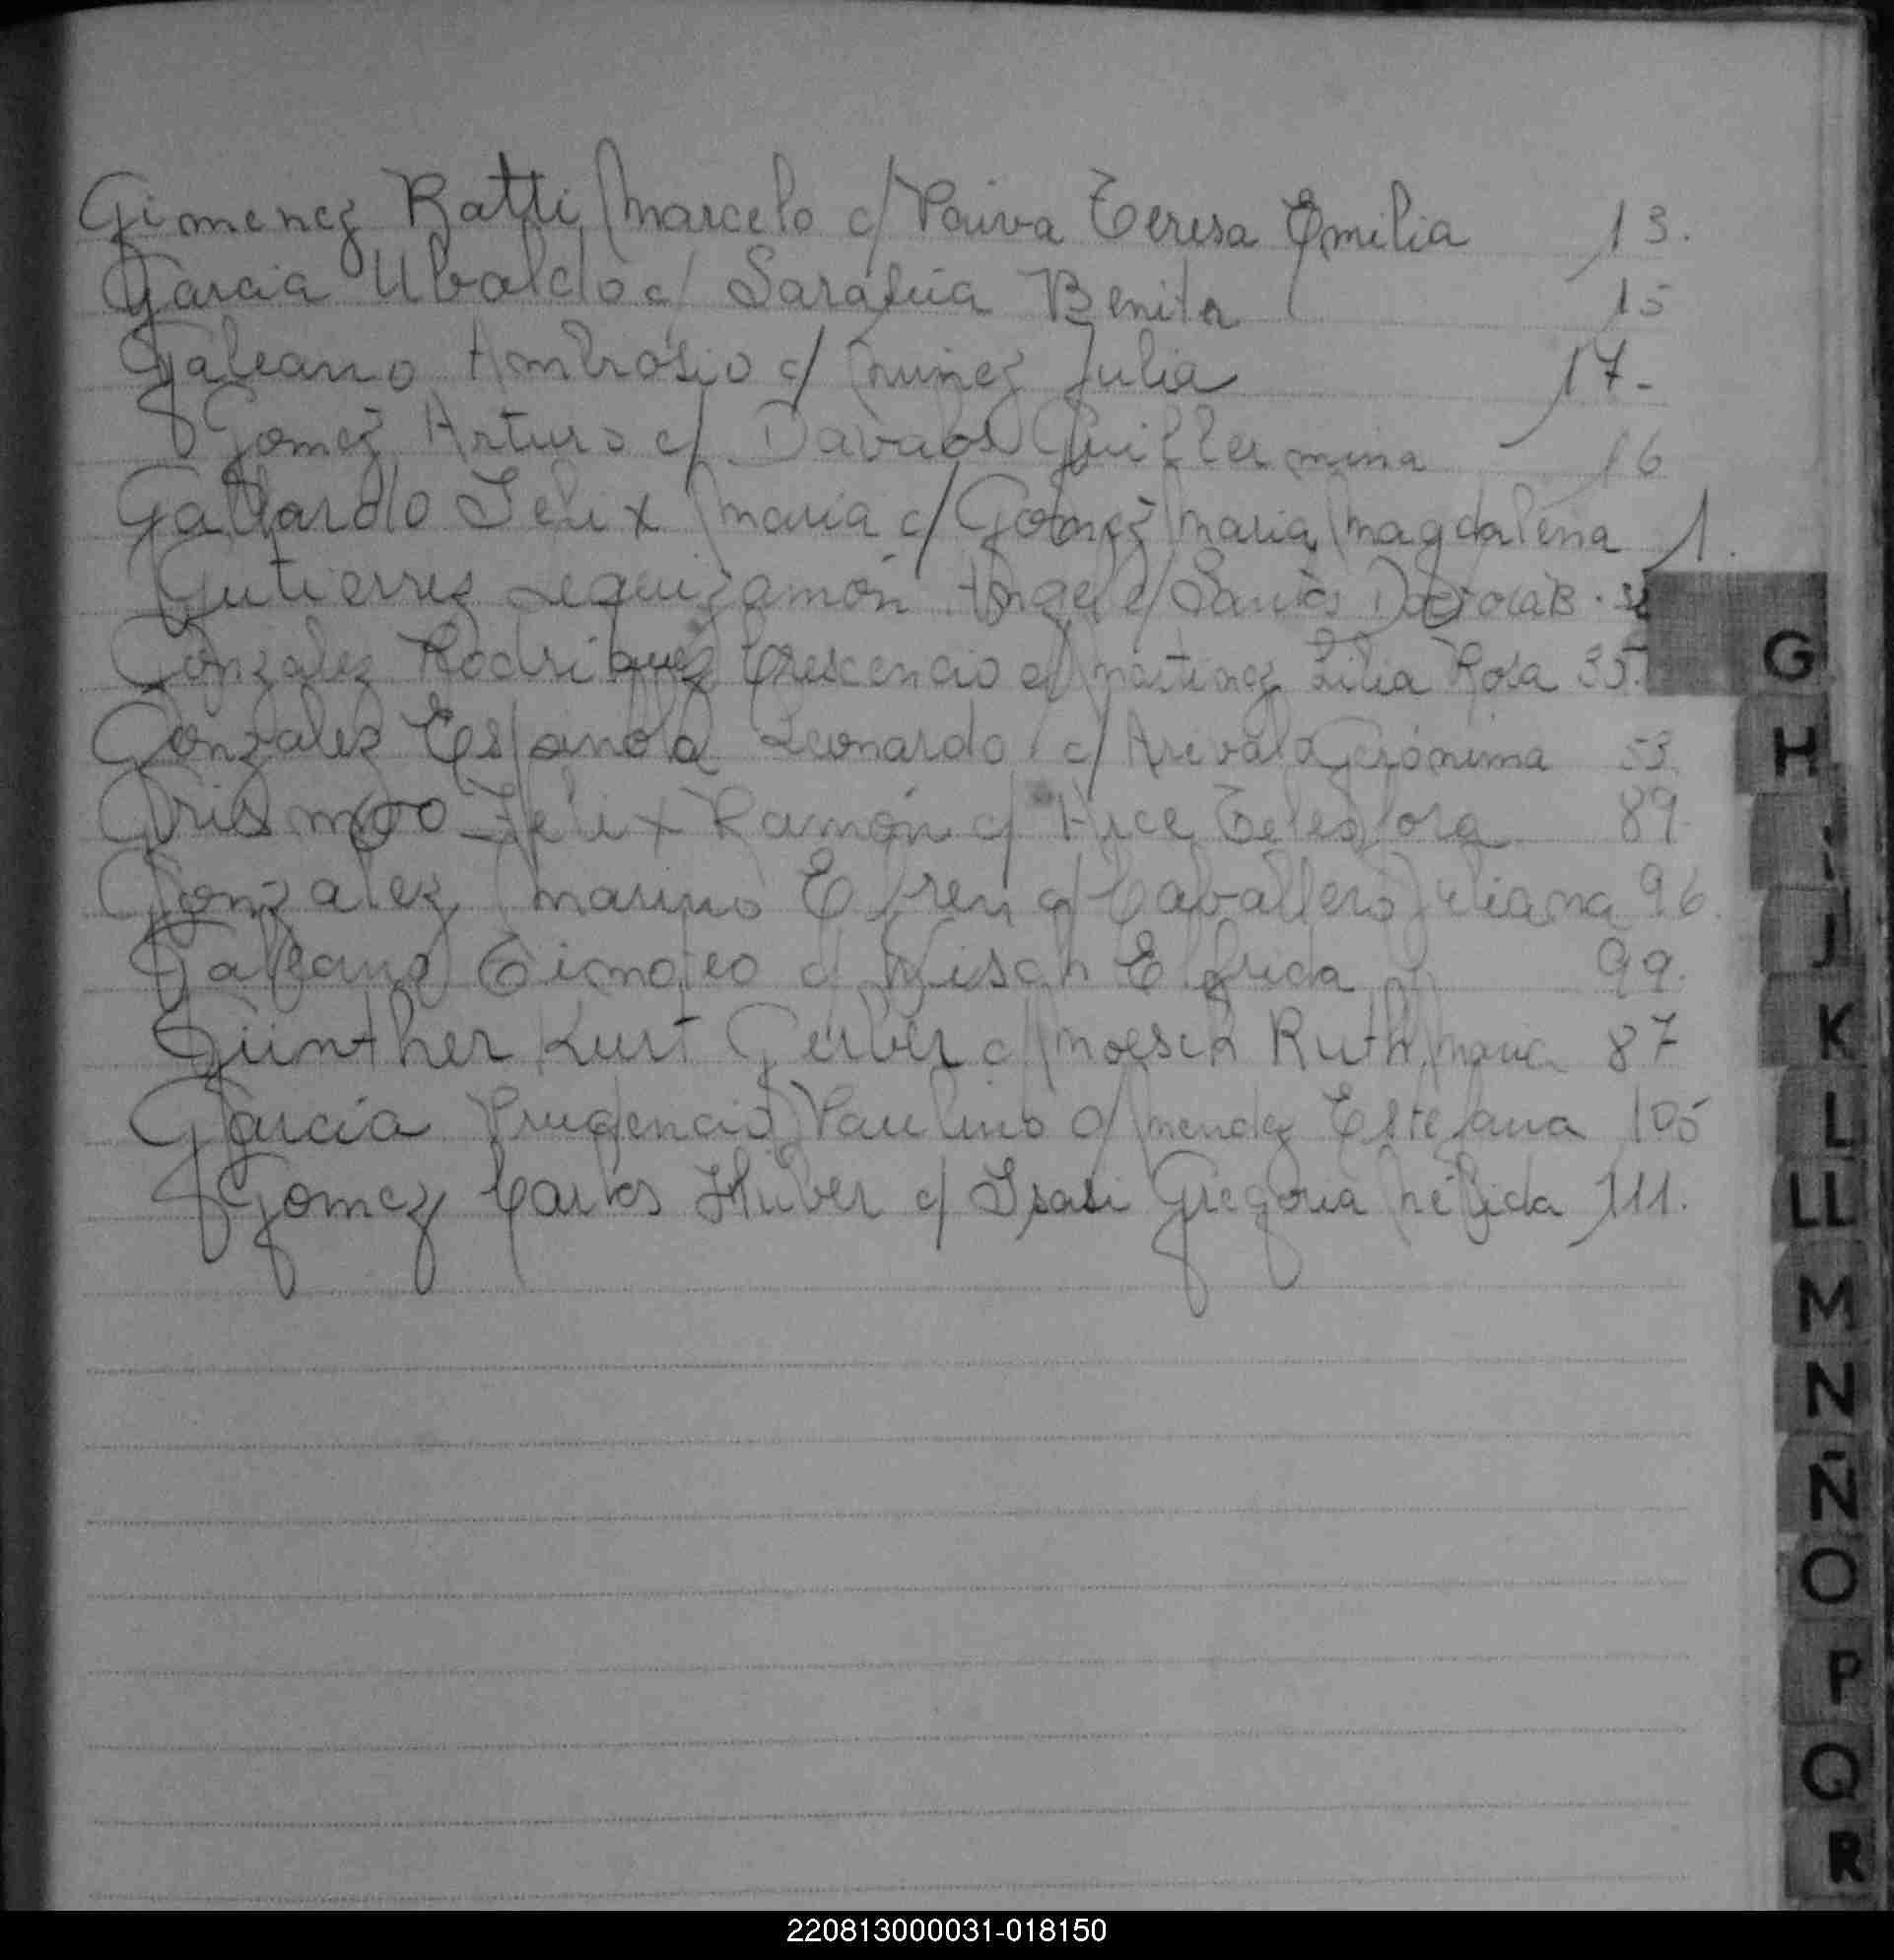 Gimenez Ratti Marcelo c/ Paiva Teresa Emilia 13.
Garcia Ubaldo c/ Sarasúa Benita 15
Galeano Ambrosio c/ Nuñez Julia 17-
Gomez Arturo c/ Davalos Guillermina 16
Gallardo Felix Maria c/ Gomez Maria Magdalena 1.
Gutierrez Leguizamón Angel c/ Santos
Gonzalez Rodriguez Crescencio c/ Martinez Lilia Rosa 35.
Gonzalez Española Leonardo c/ Arevalo Gerónima 53
Felix Ramón c/ Telesfora 89
Gonzalez Marino Efren c/ Caballero Juliana 96.
Galeano Timoteo c/ Elfrida 99.
Günther Kurt Gerber c/ Moesch Ruth Maria 87
García Prudencio Paulino c/ Mendez Estefana 105
Gomez Carlos Huber c/ Isasi Gregoria Nélida 111.
G
H
I
J
K
L
LL
M
N
Ñ
O
P
Q
R
220813000031-018150